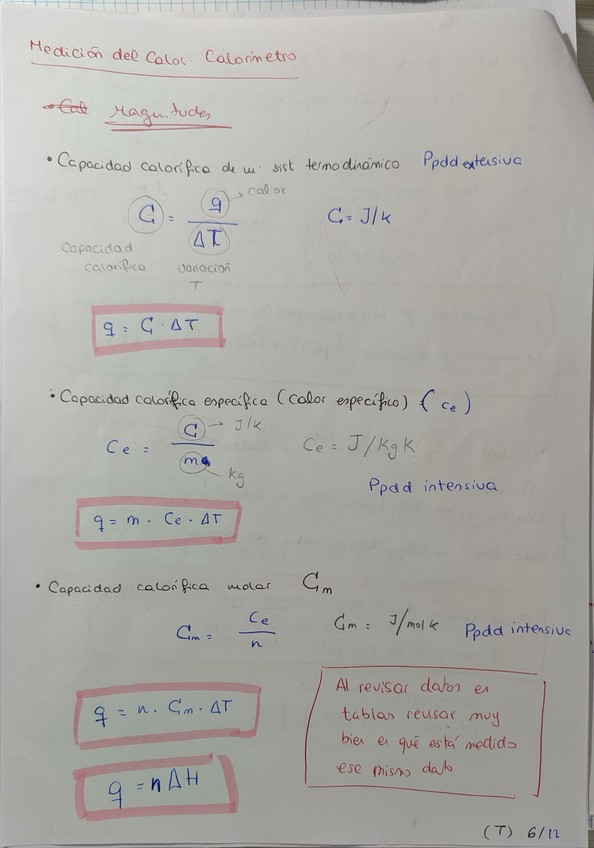 Medición del Calor. Calorímetro
Magnitudes
• Capacidad calorífica de un sist termodinámico Ppdd extensiva
C = q / ΔT → calor C = J/k
Capacidad calorífica variación T
q = C · ΔT
• Capacidad calorífica específica (calor específico) (ce)
Ce = C / m → J/k Ce = J/kg K
kg
Ppdd intensiva
q = m · Ce · ΔT
• Capacidad calorífica molar Cm
Cm = Ce / n Cm = J/mol k Ppdd intensiva
q = n · Cm · ΔT
q = n ΔH
Al revisar datos en
tablas revisar muy
bien en qué está medido
ese mismo dato
(T) 6/12